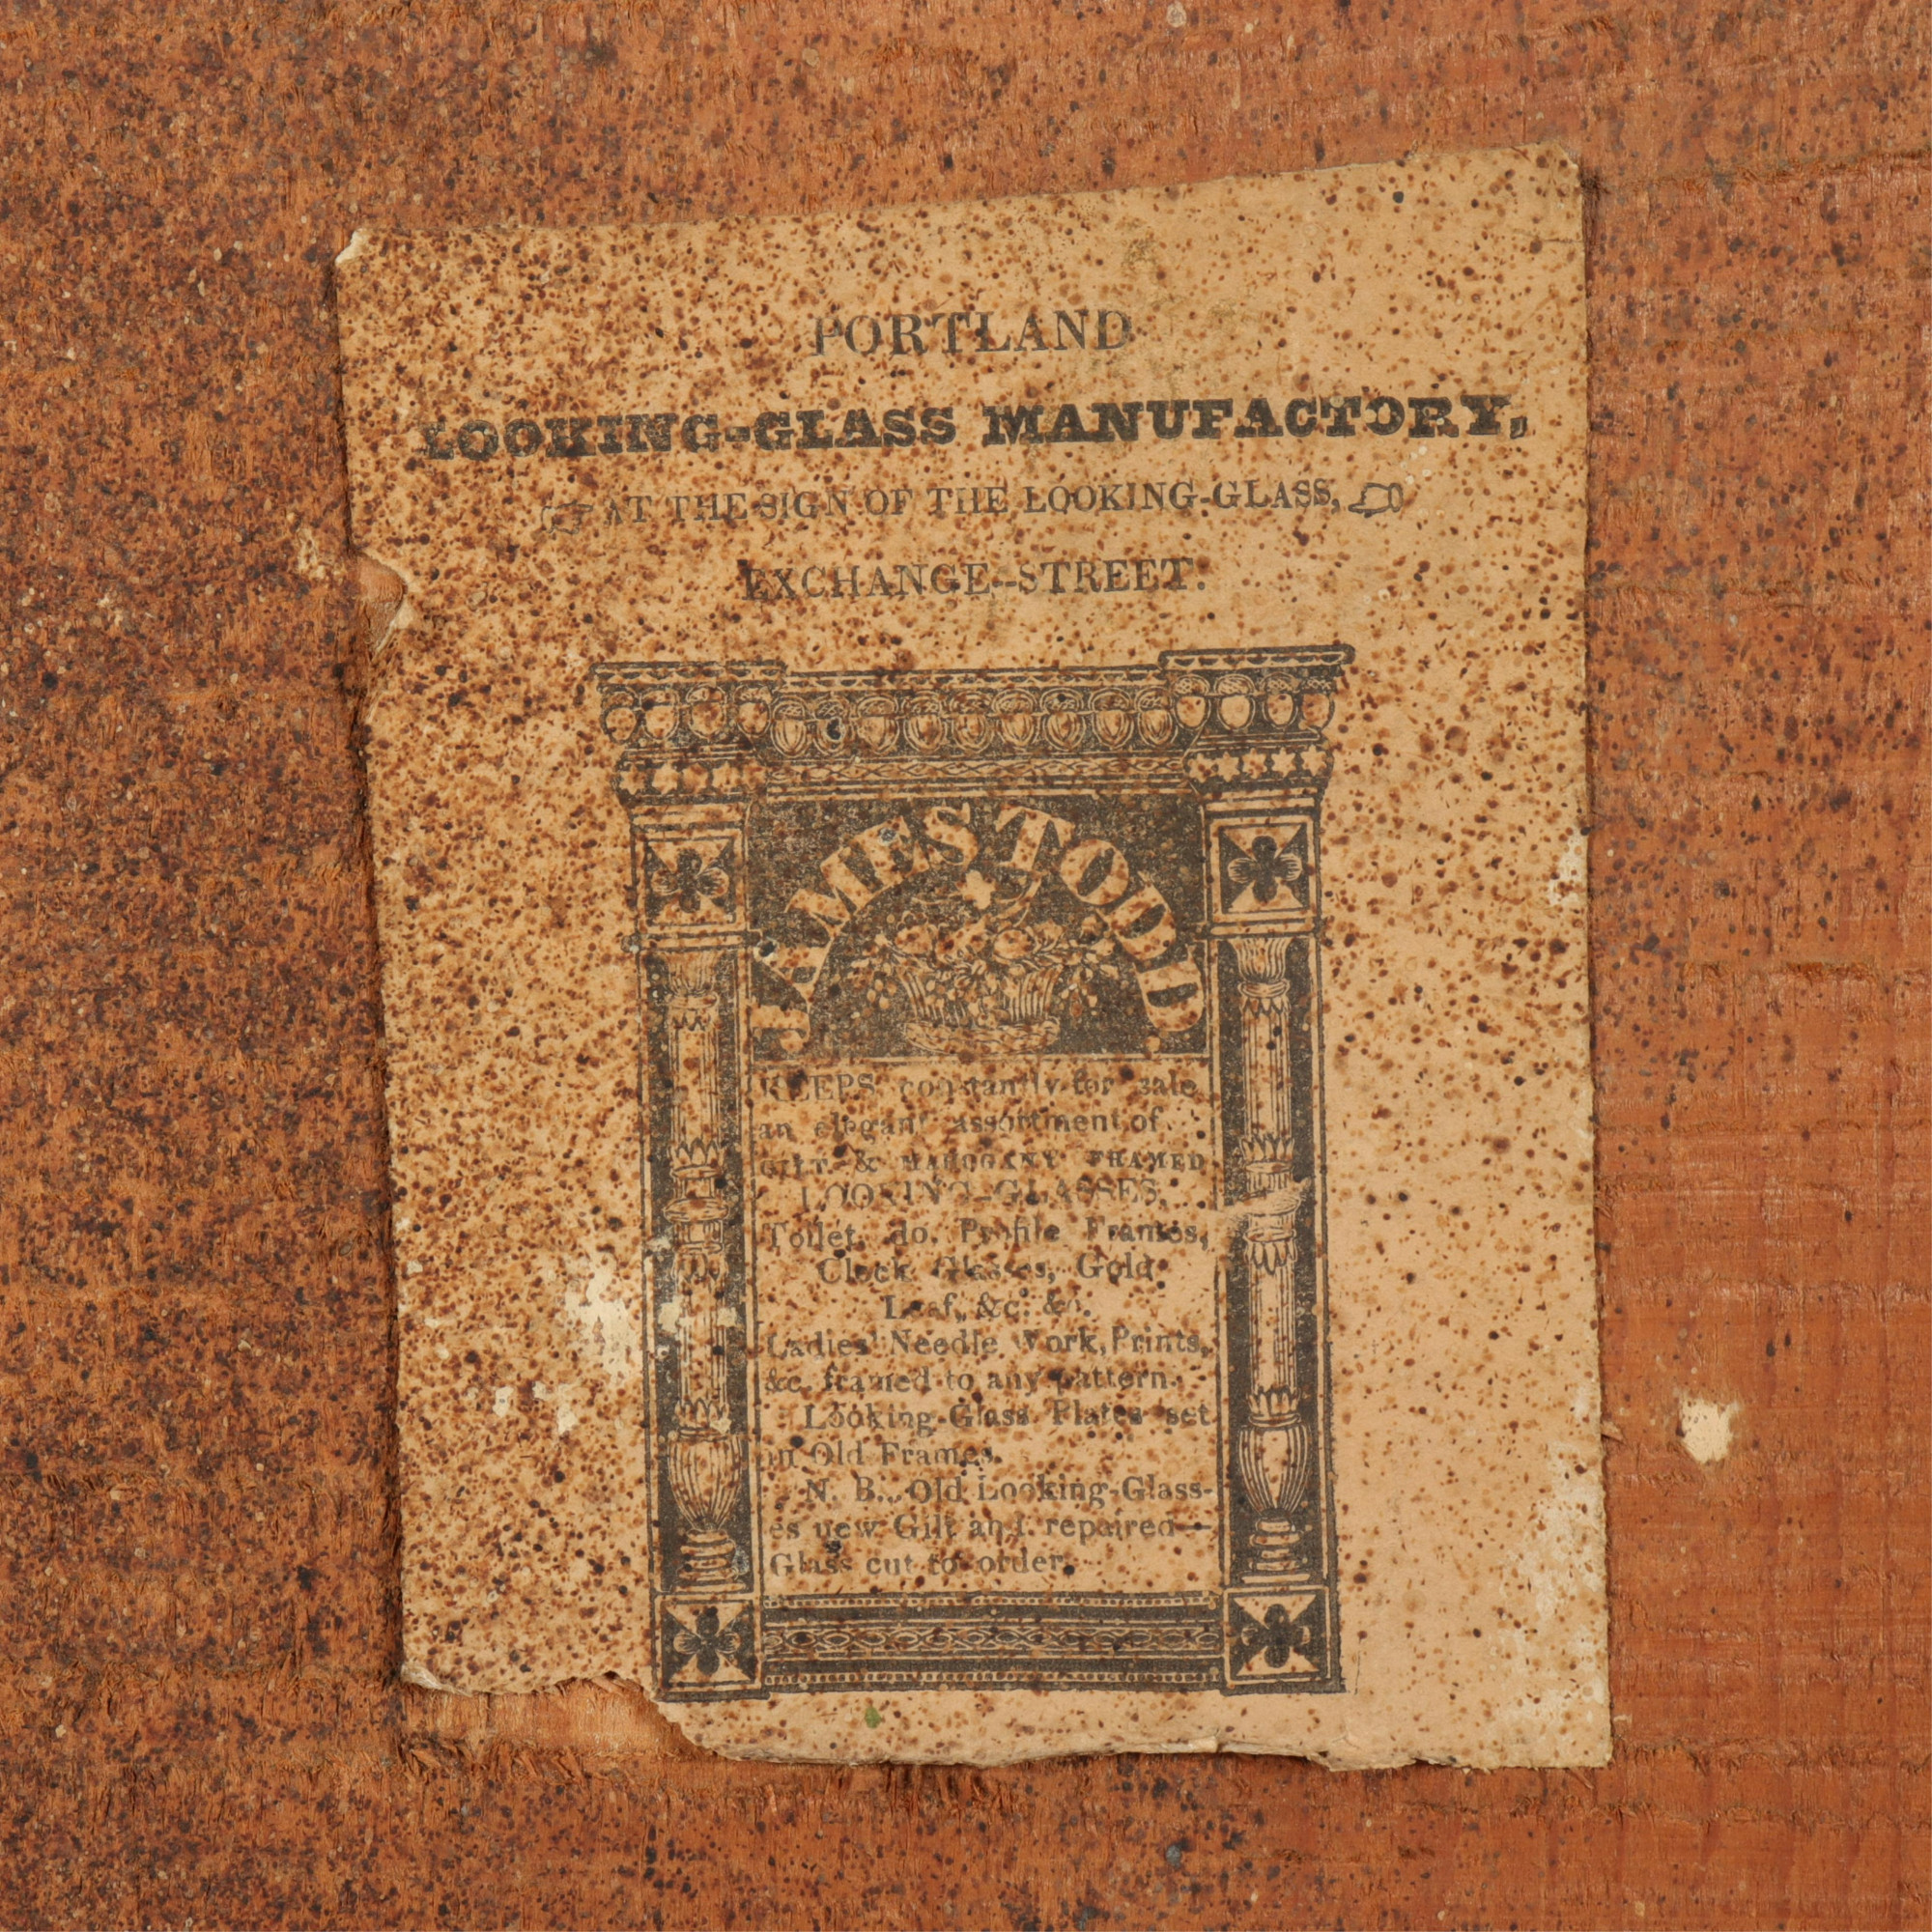 PORTLAND
LOOKING-GLASS MANUFACTORY,
☞ AT THE SIGN OF THE LOOKING-GLASS, ☜
EXCHANGE--STREET.
JAMES TODD
KEEPS constantly for sale
an elegant assortment of
GILT & MAHOGANY FRAMED
LOOKING-GLASSES,
Toilet, do. Profile Frames,
Clock Glasses, Gold
Leaf, &c. &c.
Ladies' Needle Work, Prints,
&c. framed to any pattern.
Looking-Glass Plates set
in Old Frames.
N. B... Old Looking-Glass-
es new Gilt and repaired—
Glass cut to order.